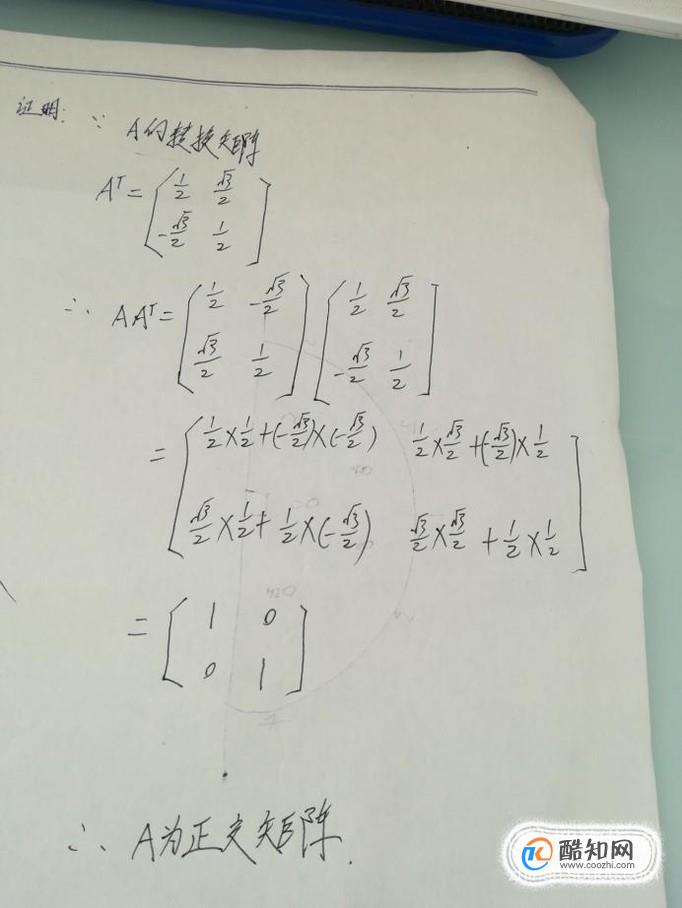 证明: ∵ A的转换矩阵
Aᵀ = [ 1/2 √3/2
-√3/2 1/2 ]
∴ AAᵀ = [ 1/2 -√3/2 ] [ 1/2 √3/2 ]
[ √3/2 1/2 ] [ -√3/2 1/2 ]
= [ 1/2×1/2+(-√3/2)×(-√3/2) 1/2×√3/2+(-√3/2)×1/2
√3/2×1/2+1/2×(-√3/2) √3/2×√3/2+1/2×1/2 ]
= [ 1 0
0 1 ]
∴ A为正交矩阵.
酷知网
www.coozhi.com